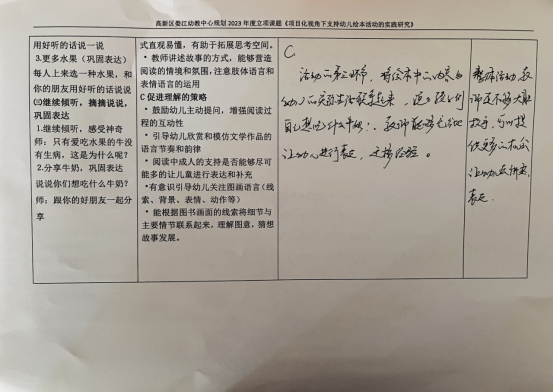 高新区娄江幼教中心规划 2023 年度立项课题《项目化视角下支持幼儿绘本活动的实践研究》
用好听的话说一说
3.更多水果（巩固表达）
每人上来选一种水果，和
你的朋友用好听的话说说
㈢继续倾听，摘摘说说，
巩固表达
1.继续倾听，感受神奇
师：只有爱吃水果的牛没
有生病，这是为什么呢？
2.分享牛奶，巩固表达
说说你们想吃什么牛奶？
师：跟你的好朋友一起分
享
式直观易懂，有助于拓展思考空间。
• 教师讲述故事的方式，能够营造
阅读的情境和氛围,注意肢体语言和
表情语言的运用
C 促进理解的策略
• 鼓励幼儿主动提问，增强阅读过
程的互动性
• 引导幼儿欣赏和模仿文学作品的
语言节奏和韵律
• 阅读中成人的支持是否能够尽可
能多的让儿童进行表达和补充
•有意识引导幼儿关注图画语言(线
索、背景、表情、动作等)
• 能根据图书画面的线索将细节与
主要情节联系起来，理解图意，猜想
故事发展。
C
活动二第三环节，将绘本中的内容和
幼儿的实际生活联系起来，
自己想吃什么牛奶？，教师能够充分地
让幼儿进行表达，
整体活动，教
师还不够大胆
放手，可以提
供更多的机会
让幼儿去
表达。